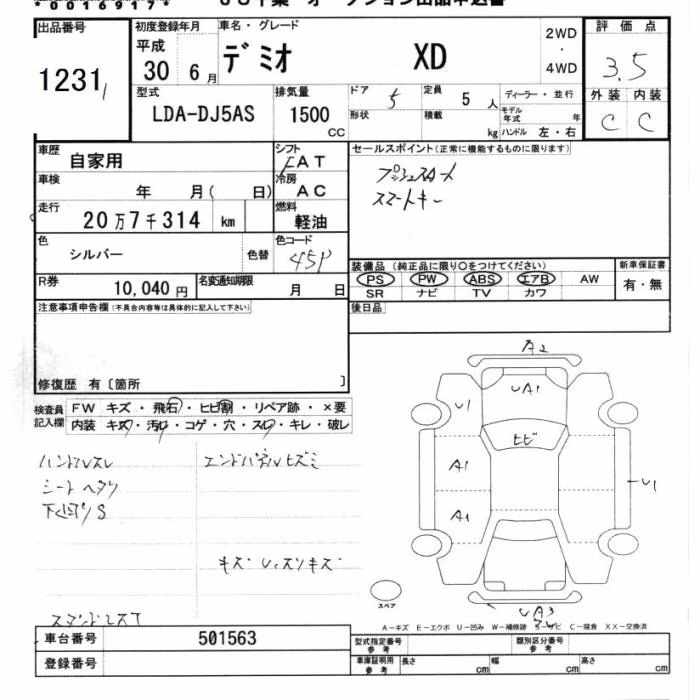 *00169174*
出品番号
1231
初度登録年月
平成
30 6月
車名・グレード
デミオ XD
2WD
・
4WD
評価点
3.5
型式
LDA-DJ5AS
排気量
1500
CC
ドア 5
定員 5 人
ディーラー・並行
形状
積載 kg
モデル年式 年
ハンドル 左・右
外装 内装
C C
車歴
自家用
シフト
FAT
セールスポイント(正常に機能するものに限ります)
プッシュスタート
スマートキー
車検
年 月( 日)
冷房
AC
走行
20万7千314 km
燃料
軽油
色
シルバー
色替
色コード
45P
装備品(純正品に限り○をつけてください)
PS PW ABS エアB AW
SR ナビ TV カワ
新車保証書
有・無
R券
10,040円
名変通知期限
月 日
後日品
注意事項申告欄(不具合内容等は具体的に記入して下さい)
修復歴 有〔箇所 〕
検査員記入欄
FW キズ・飛石・ヒビ割・リペア跡・×要
内装 キズ・汚れ・コゲ・穴・スレ・キレ・破レ
ハンドルスレ
シート ヘタリ
下回りS
エンドパネルヒズミ
キズ U、スリキズ
A2
UA1
U1
ヒビ
A1
A1
U1
UA3
スペア
A-キズ E-エクボ U-凹み W-補修跡 S-サビ C-腐食 XX-交換済
車台番号
501563
登録番号
型式指定番号
参考
類別区分番号
参考
車庫証明用
参考
長さ cm
幅 cm
高さ cm